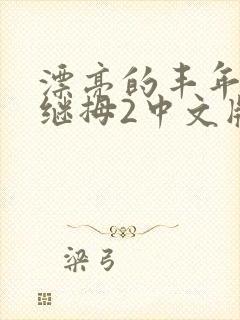 漂亮的丰年
继拇2中文版
梁弓